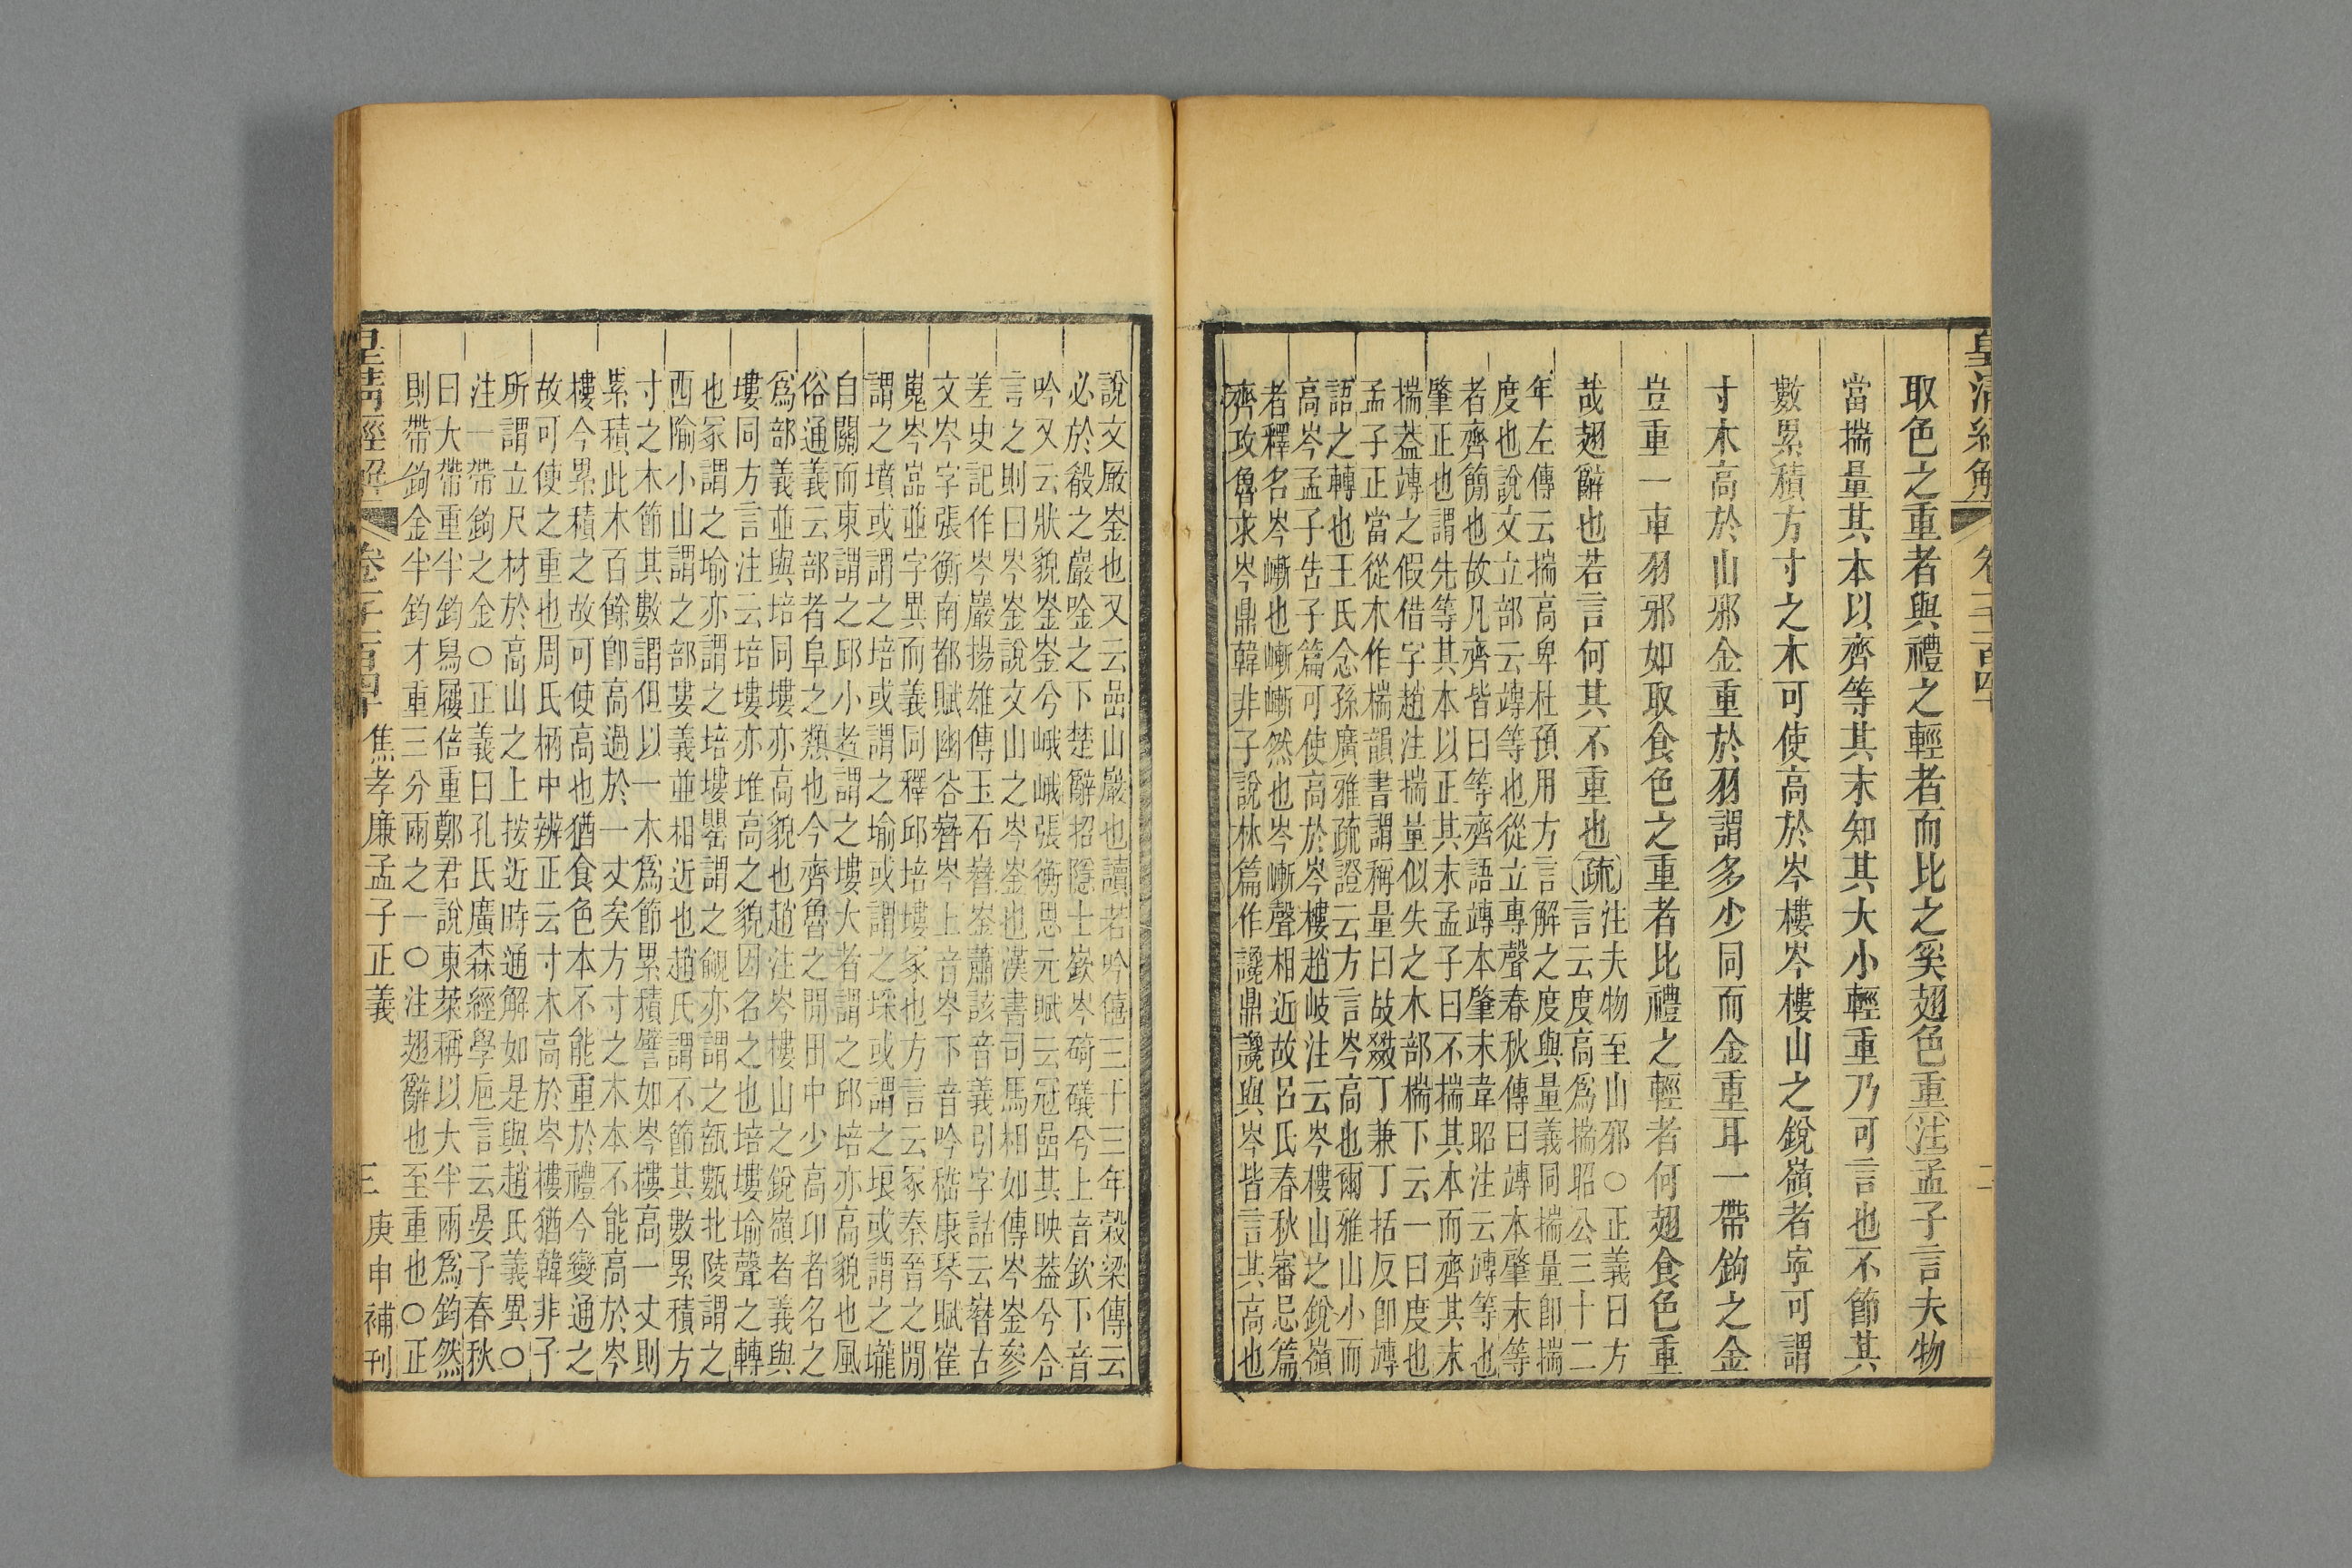 皇清經解 卷一千一百四十 二
取色之重者與禮之輕者而比之奚翅色重注孟子言夫物
當揣量其本以齊等其末知其大小輕重乃可言也不節其
數累積方寸之木可使高於岑樓岑樓山之銳嶺者寧可謂
寸木高於山邪金重於羽謂多少同而金重耳一帶鉤之金
豈重一車羽邪如取食色之重者比禮之輕者何翅食色重
哉翅辭也若言何其不重也疏注夫物至山邪○正義曰方
言云度高為揣昭公三十二
年左傳云揣高卑杜預用方言解之度與量義同揣量卽揣
度也說文立部云竱等也從立專聲春秋傳曰竱本肇末等
者齊簡也故凡齊皆曰等齊語竱本肇末韋昭注云竱等也
肇正也謂先等其本以正其末孟子曰不揣其本而齊其末
揣葢竱之假借字趙注揣量似失之木部椯下云一曰度也
孟子正當從木作椯韻書謂稱量曰敁敠丁兼丁括反卽竱
語之轉也王氏念孫廣雅疏證云方言岑高也爾雅山小而
高岑孟子告子篇可使高於岑樓趙岐注云岑樓山之銳嶺
者釋名岑嶃也嶃嶃然也岑嶃聲相近故呂氏春秋審忌篇
齊攻魯求岑鼎韓非子說林篇作讒鼎讒與岑皆言其高也
說文厰崟也又云嵒山巖也讀若吟僖三十三年穀梁傳云
必於殽之巖唫之下楚辭招隱士嶔岑碕礒兮上音欽下音
吟又云狀貌崟崟兮峨峨張衡思元賦云冠嵒其映葢兮合
言之則曰岑崟說文山之岑崟也漢書司馬相如傳岑崟參
差史記作岑巖揚雄傳玉石嶜崟蕭該音義引字詁云嶜古
文岑字張衡南都賦幽谷嶜岑上音岑下音吟嵇康琴賦崔
嵬岑嵓並字異而義同釋邱培塿冢也方言云冢秦晉之閒
謂之墳或謂之培或謂之堬或謂之埰或謂之埌或謂之壠
自關而東謂之邱小者謂之塿大者謂之邱培亦高貌也風
俗通義云部者阜之類也今齊魯之閒田中少高卬者名之
為部義並與培同塿亦高貌也趙注岑樓山之銳嶺者義與
塿同方言注云培塿亦堆高之貌因名之也培塿堬聲之轉
也冢謂之堬亦謂之培塿罌謂之㼶亦謂之瓿甊北陵謂之
西隃小山謂之部婁義並相近也趙氏謂不節其數累積方
寸之木節其數謂但以一木為節累積譬如岑樓高一丈則
累積此木百餘卽高過於一丈矣方寸之木本不能高於岑
樓今累積之故可使高也猶食色本不能重於禮今變通之
故可使之重也周氏柄中辨正云寸木高於岑樓猶韓非子
所謂立尺材於高山之上按近時通解如是與趙氏義異○
注一帶鉤之金○正義曰孔氏廣森經學卮言云晏子春秋
曰大帶重半鈞舄屨倍重鄭君說東萊稱以大半兩為鈞然
則帶鉤金半鈞才重三分兩之一○注翅辭也至重也○正
皇清經解 卷一千一百四十 焦孝廉孟子正義 三 庚申補刊